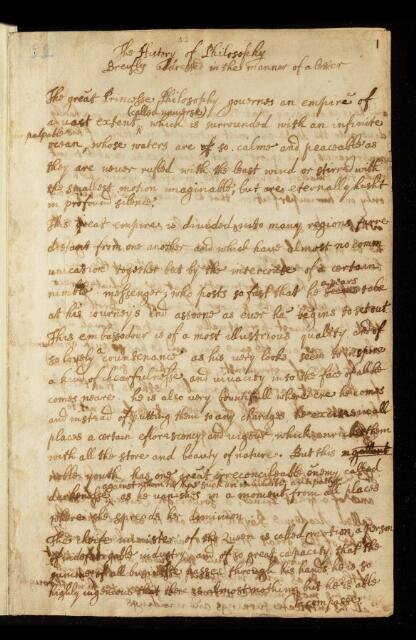 32
1
The History of Philosophy
Breifly addressed in the manner of a letter
The great Princesse Philosophy governes an empire of
(called universe)
a vast extent which is surrounded with an infinite
palpable
ocean, whose waters are so calme and peaceable as
they are never rufled with the least wind or stirred with
the smallest motion imaginable, but are eternally husht
in profound silence.
This great empire is divided into many regions farre
distant from one another and which have almost no comm
unication together but by the intercourse of a certain
nimble messenger, who posts so fast that he
apears
to be
at his journeys end assone as ever he begins to set out
This embassadour is of a most illustrious quality and of
so lovely a countenance as his very looks seem to inspire
a kind of chearfulnesse and vivacity into the face of all he
comes neere. he is also very bountifull where ere he comes
and instead of putting them to any charges he in all
places a certain and vigour which them
with all the store and beauty of nature. But this
noble youth has one great irreconcileable enemy called
darknesse, as he vanishes in a moment from all places
where she spreads her dominion.
This cheife minister of the Queen is called motion, a person
of indefatigable industry and of so great capacity that the
of all businesse passes through his hands he is so
highly ingenious that there is almost nothing but he is able
to compasse.